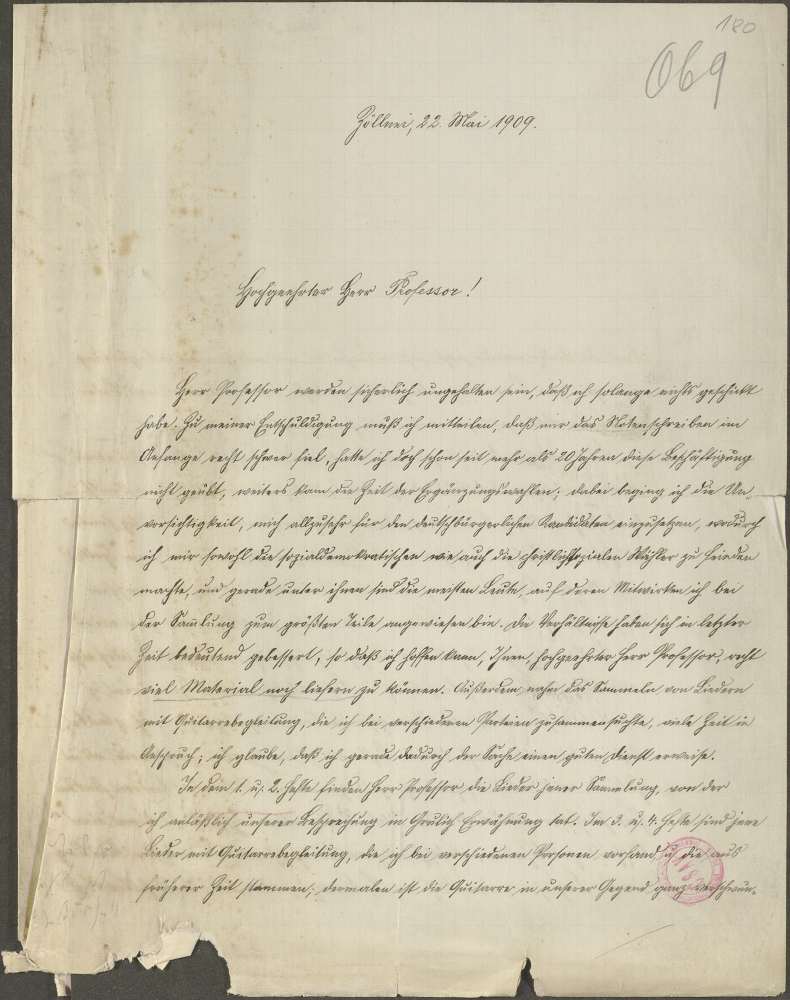 180
069
Zöllnei, 22. Mai 1909.
Hochgeehrter Herr Professor!
Herr Professor werden sicherlich ungehalten sein, daß ich solange nichts geschickt
habe. Zu meiner Entschuldigung muß ich mitteilen, daß mir das Notenschreiben im
Anfange recht schwer fiel, hatte ich doch schon seit mehr als 20 Jahren diese Beschäftigung
nicht geübt, weiters kam die Zeit der Ergänzungswahlen; dabei beging ich die Un-
vorsichtigkeit, mich allzusehr für den deutschbürgerlichen Kandidaten einzusetzen, wodurch
ich mir sowohl die sozialdemokratischen wie auch die christlichsozialen Wähler zu Feinden
machte, und gerade unter ihnen sind die meisten Leute, auf deren Mitwirken ich bei
der Sam̅lung zum größten Teile angewiesen bin. Die Verhältnisse haben sich in letzter
Zeit bedeutend gebessert, so daß ich hoffen kann, Ihnen, hochgeehrter Herr Professor, recht
viel Material noch liefern zu können. Außerdem nahm das Sammeln von Liedern
mit Guitarrebegleitung, die ich bei verschiedenen Parteien zusammensuchte, viele Zeit in
Anspruch; ich glaube, daß ich gerade dadurch der Sache einen guten Dienst erweise.
In dem 1. u. 2. Hefte finden Herr Professor die Lieder jener Sam̅lung, von der
ich anläßlich unserer Besprechung in Grulich Erwähnung tat. Im 3. u. 4. Hefte sind jene
Lieder mit Guitarrebegleitung, die ich bei verschiedenen Personen vorfand u. die aus
früherer Zeit stammen; dermalen ist die Guitarre in unserer Gegend ganz verschwun-